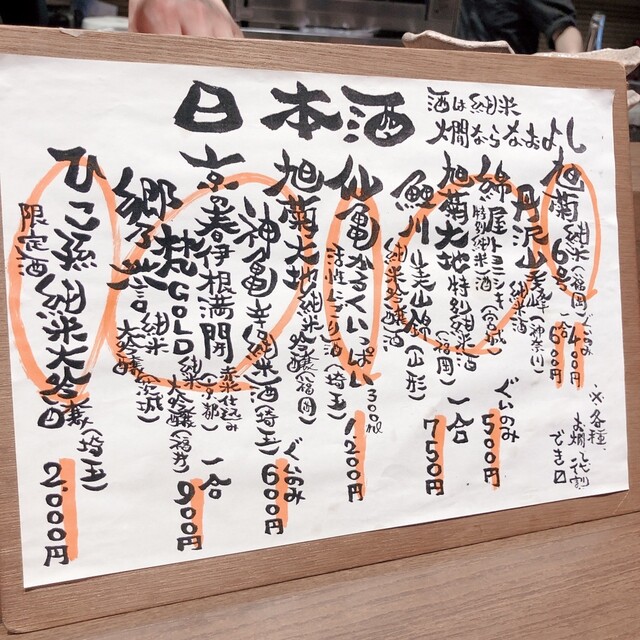 日本酒
酒は純米
燗ならなおよし
旭菊 純米(福岡)
6号
ぐいのみ 400円
一合 600円
丹沢山 純米酒(神奈川)
綿屋 トヨニシキ
特別純米酒(宮城)
ぐいのみ 500円
旭菊大地 特別純米酒(福岡)
一合 750円
鯉川 純米吟醸酒
美山錦(山形)
仙亀かるくいっぱい 300ml
活性にごり酒(埼玉)
1,200円
旭菊大地 純米吟醸(福岡)
神亀 辛口純米酒(埼玉)
ぐいのみ 600円
京の春 伊根満開
赤米仕込み(京都)
一合 900円
梵 GOLD 純米大吟醸(福井)
郷乃誉 純米大吟醸(茨城)
ひこ孫 純米大吟醸(埼玉)
限定酒
2,000円
※各種
お燗
できます